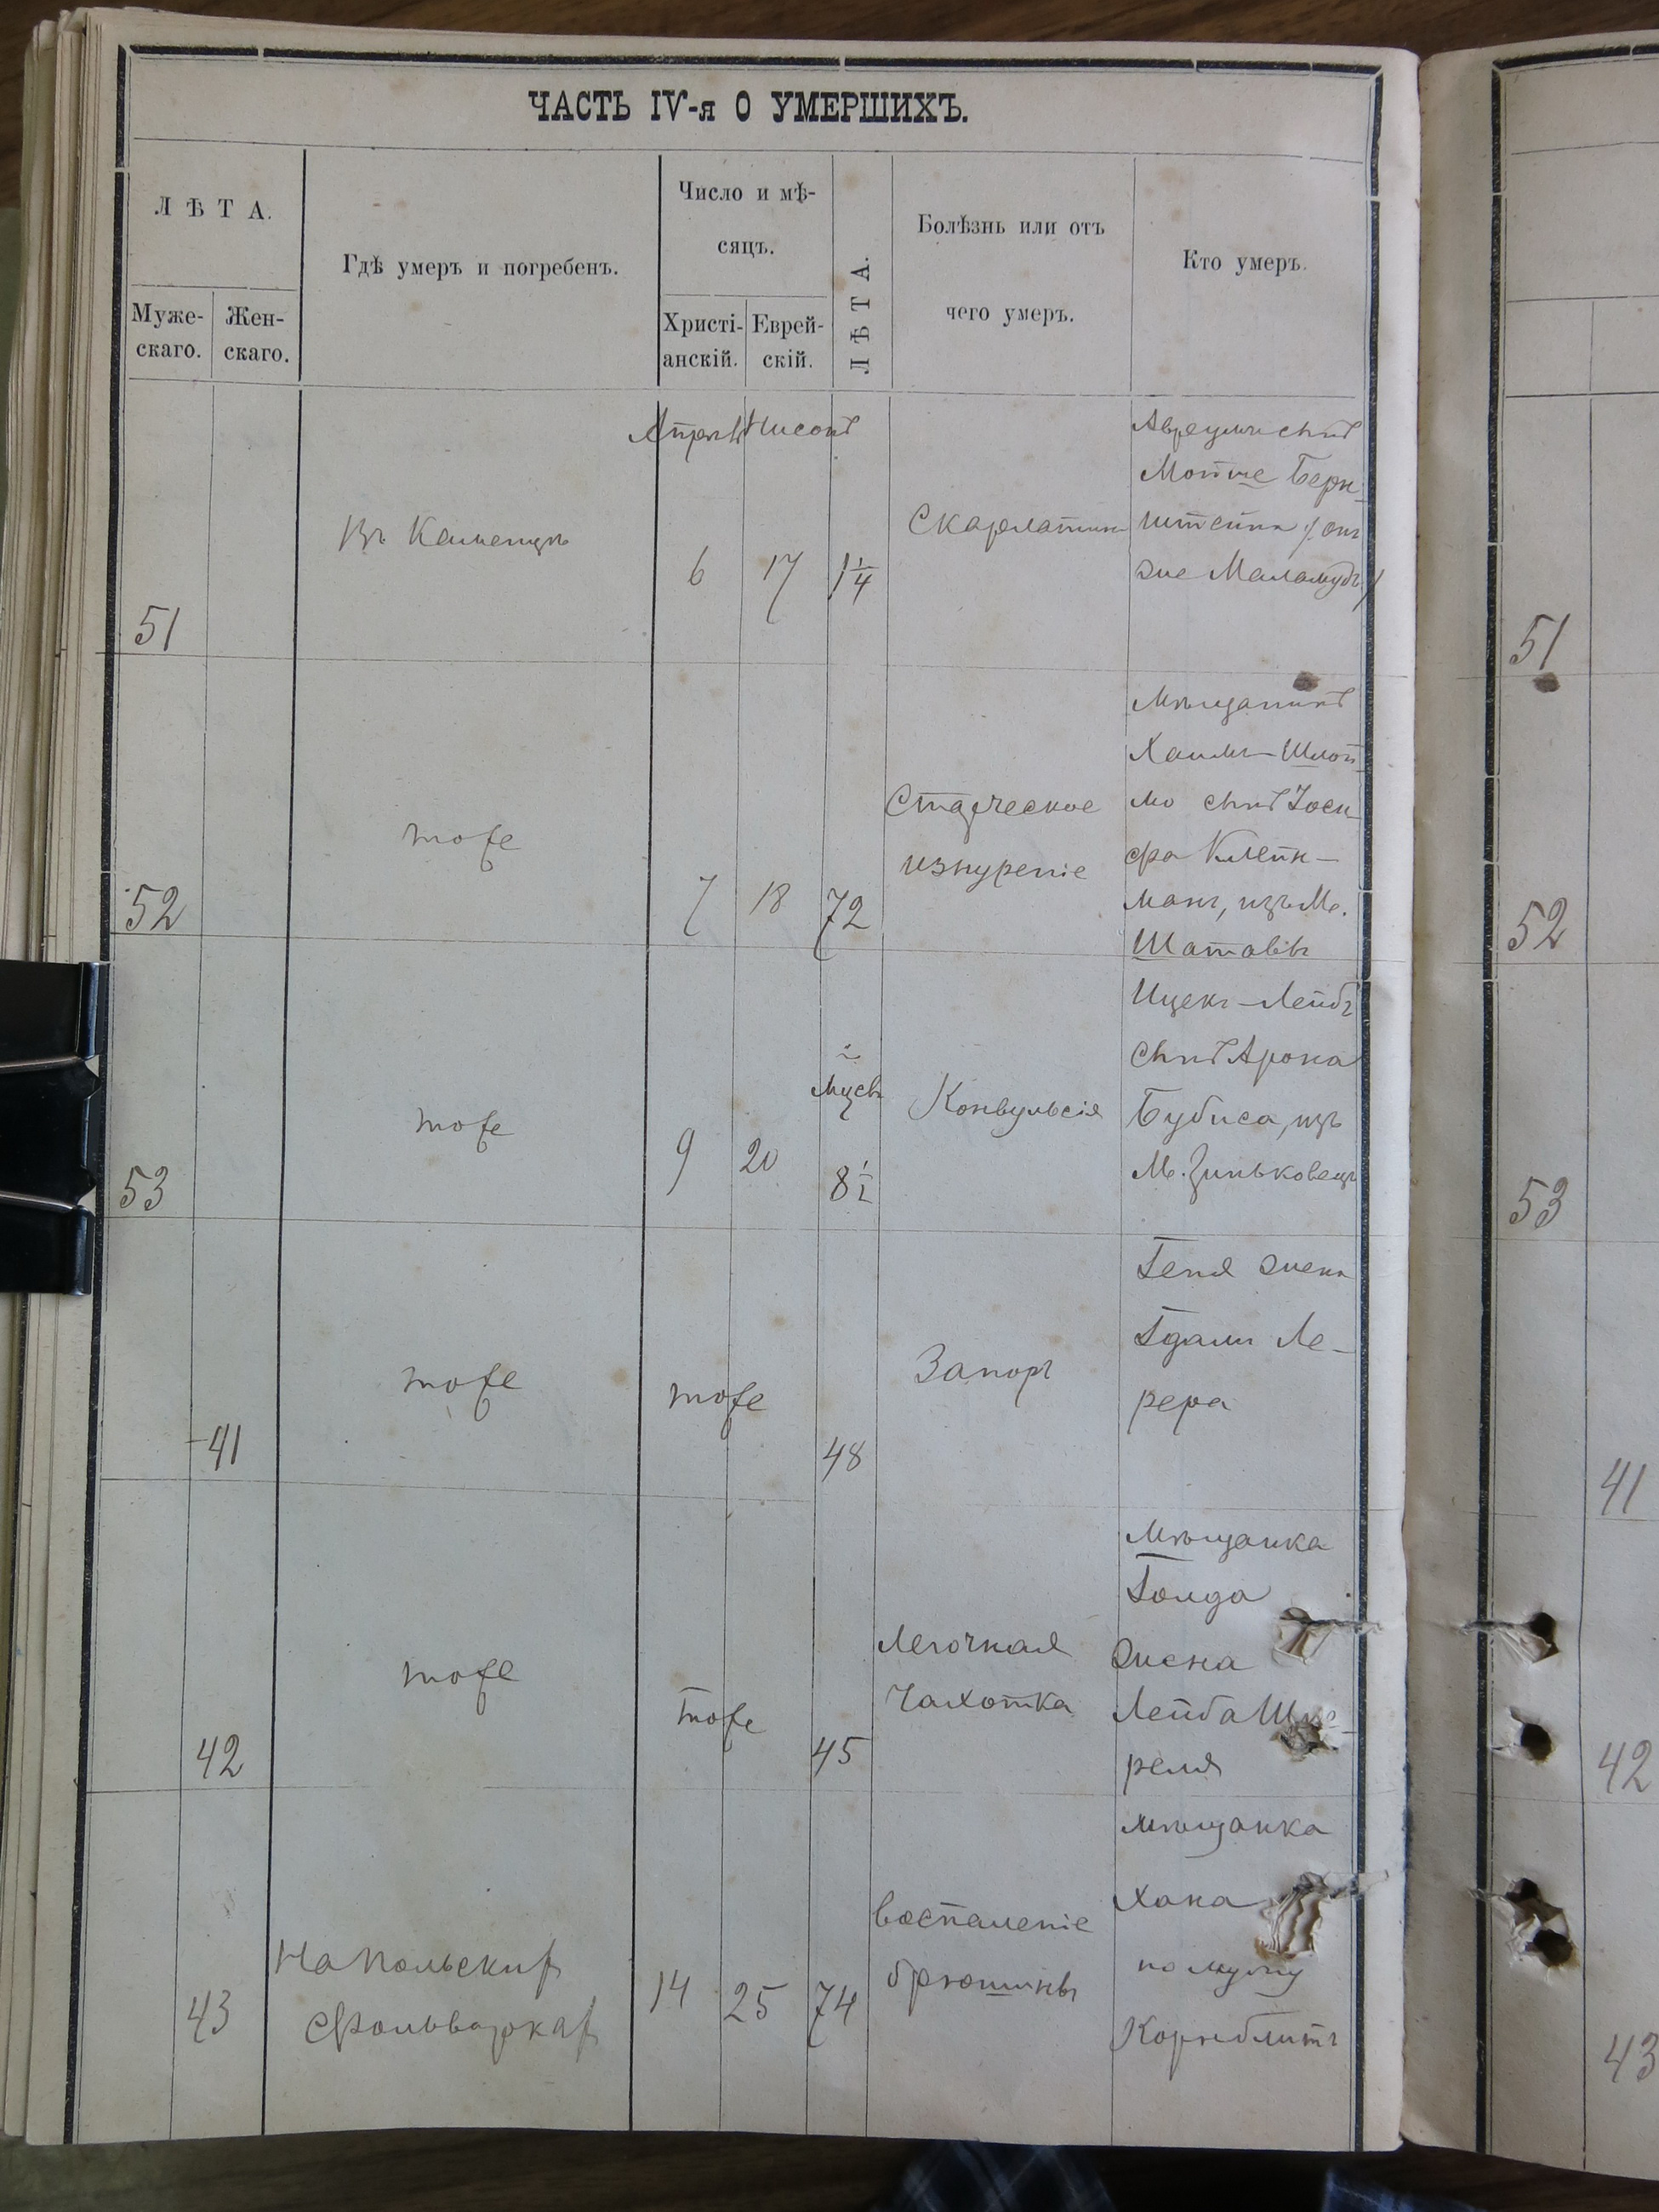 ЧАСТЬ IV-я О УМЕРШИХЪ.
ЛѢТА.
Муже-
скаго.
Жен-
скаго.
Гдѣ умеръ и погребенъ.
Число и мѣ-
сяцъ.
Христі-
анскій.
Еврей-
скій.
ЛѢТА.
Болѣзнь или отъ
чего умеръ.
Кто умеръ.
Апрель Нисонъ
51
Въ Каменцѣ
6
17
1 1/4
Скарлатина
Авреумъ сынъ
Мотте Берн-
штейна /онъ
же Маламудъ/
51
52
тоже
7
18
72
Старческое
изнуреніе
Мѣщанинъ
Хаимъ-Шлой-
мо сынъ Іоси-
фа Клейн-
манъ, изъ м.
Шатавы
52
53
тоже
9
20
мцсв
8 1/2
Конвульсія
Ицекъ-Лейбъ
сынъ Арона
Бубиса, изъ
м. Зиньковецъ
53
41
тоже
тоже
48
Запоръ
Геня жена
Гдаля Ле-
рера
41
42
тоже
тоже
45
Легочная
чахотка
Мѣщанка
Голда
жена
Лейба
реля
42
43
На Польских
Фольварках
14
25
74
воспаленіе
брюшины
мѣщанка
Хана
по мужу
Корнблитъ
43